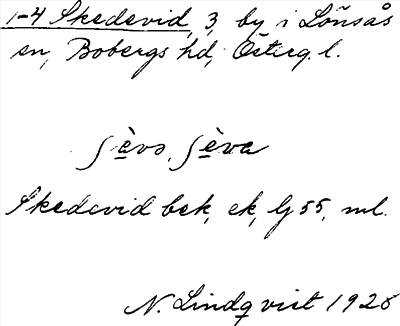 1-4 Skedevid, 3, by i Lönsås
sn, Bobergs hd, Österg. l.
ʃèvo, ʃèva
Skedevid bek, ek, Lj 55, ml.
N. Lindqvist 1928